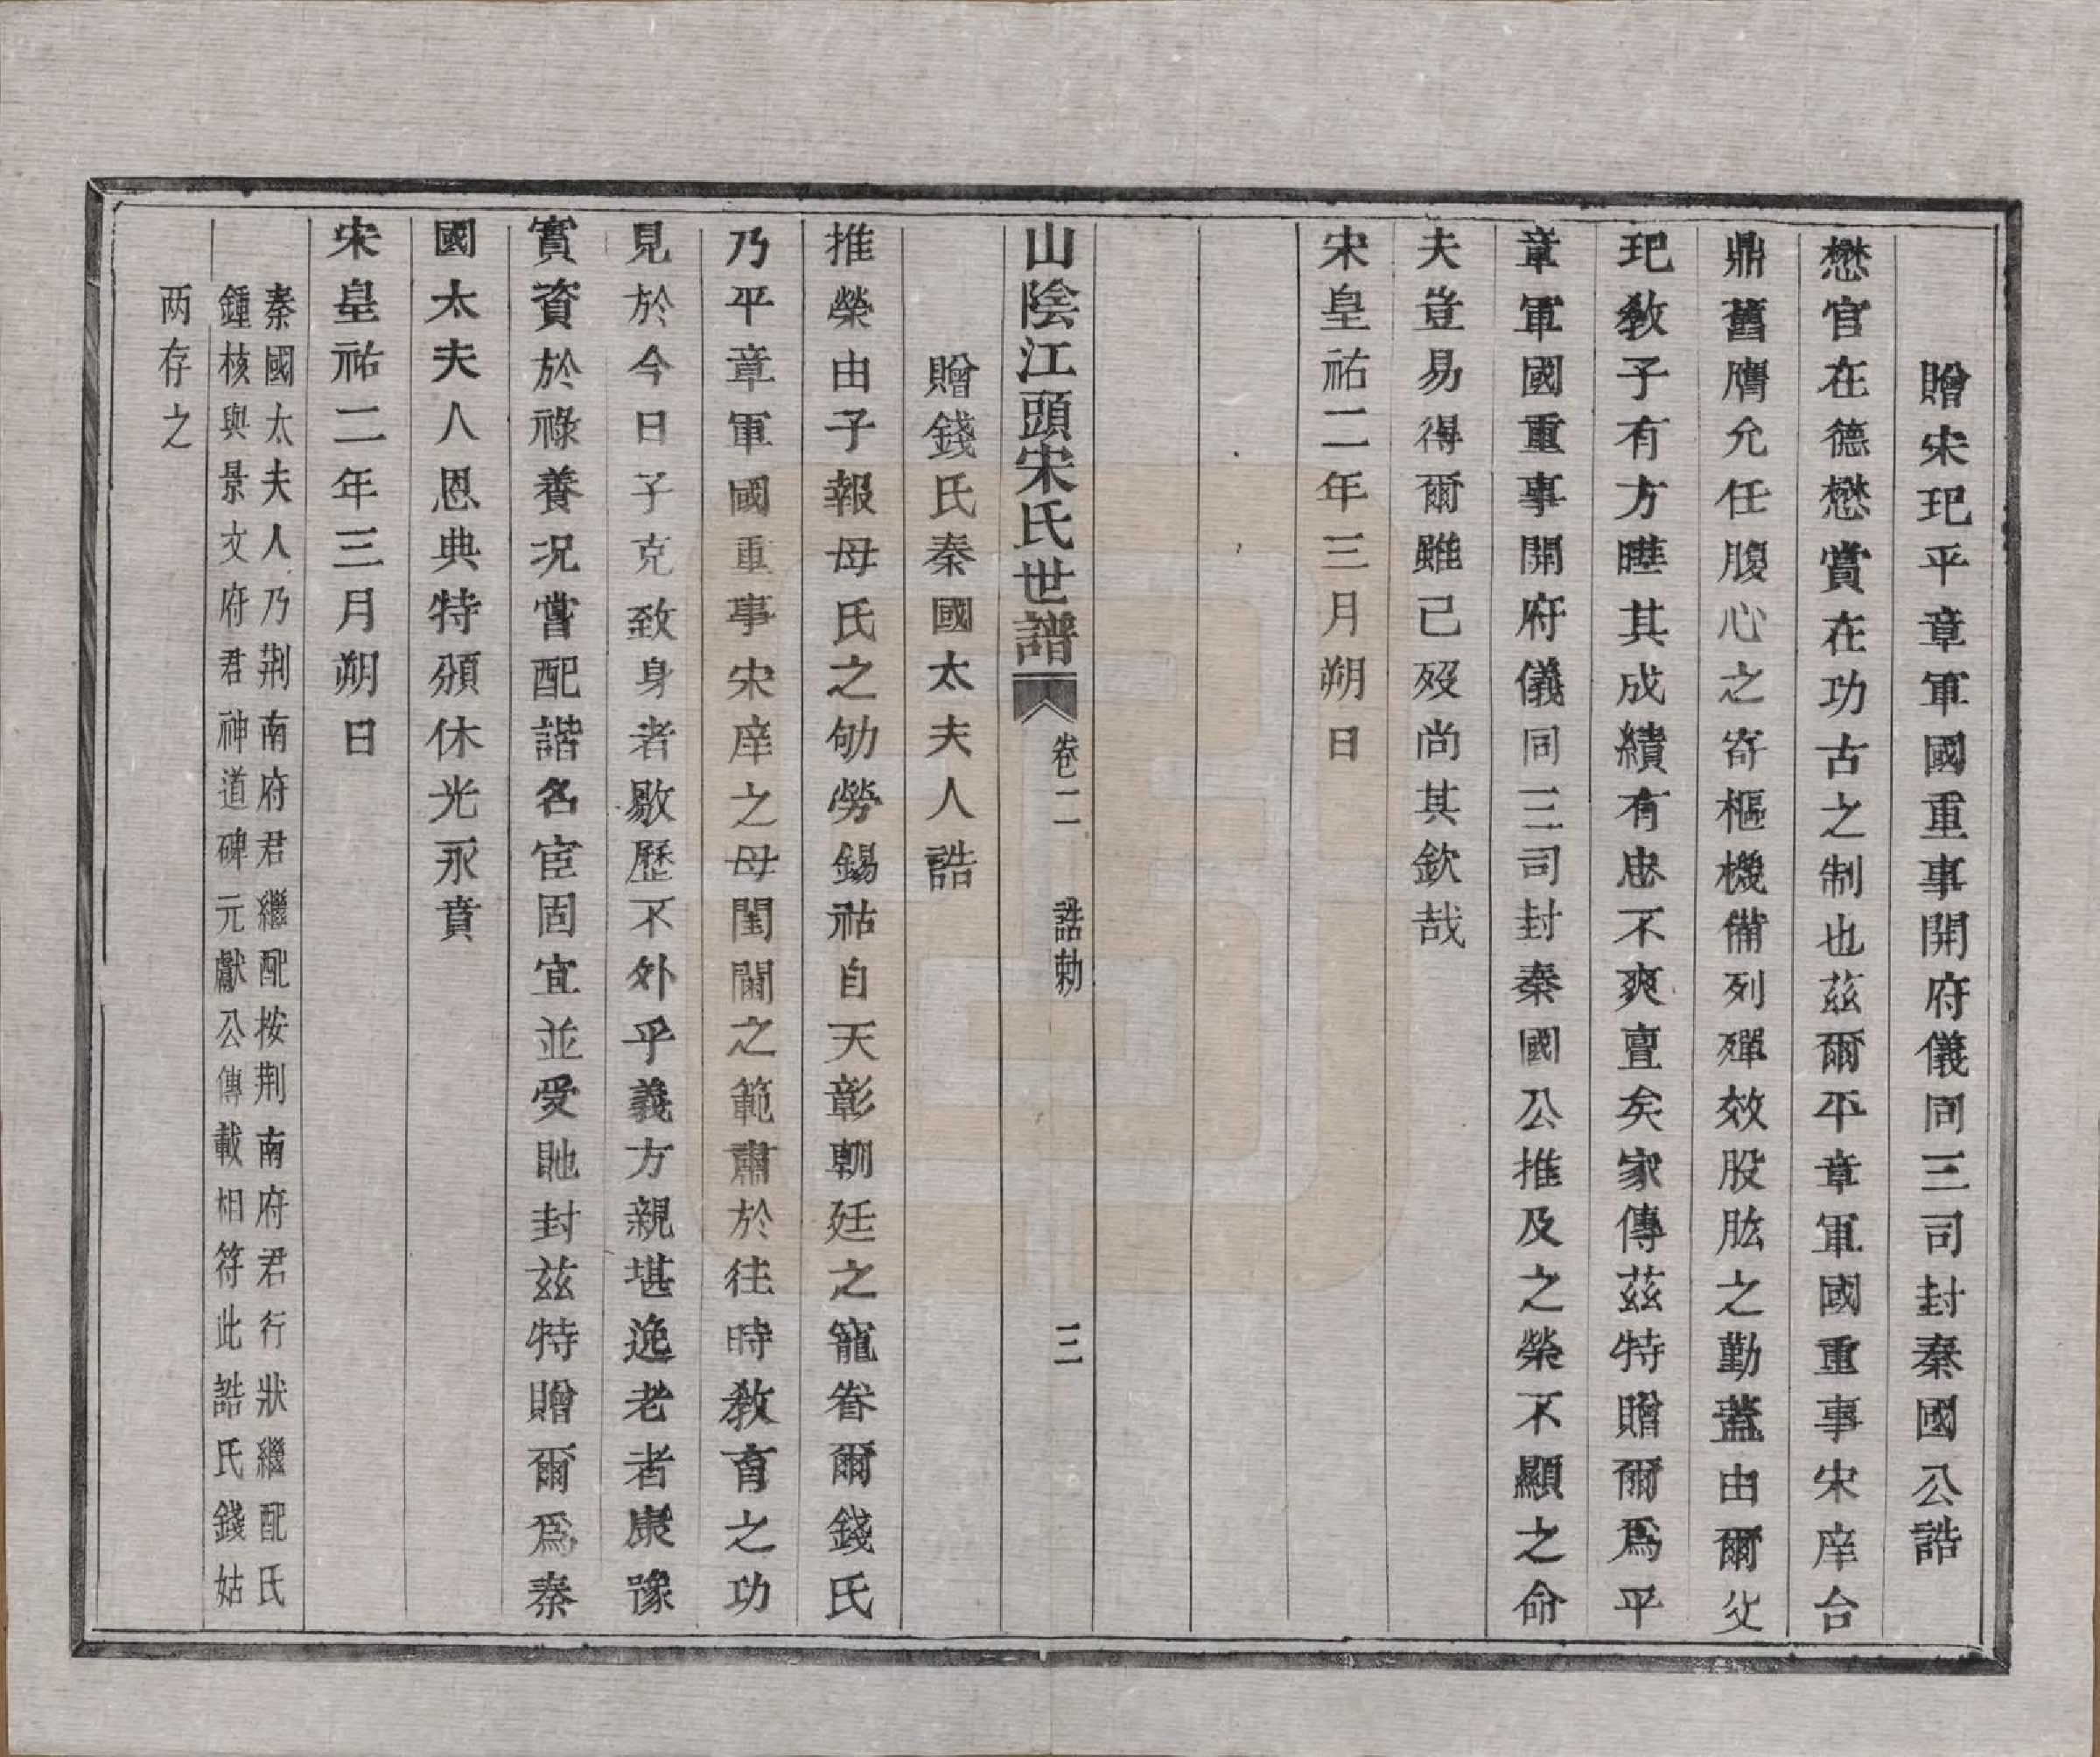 贈宋玘平章軍國重事開府儀同三司封秦國公誥
懋官在德懋賞在功古之制也茲爾平章軍國重事宋庠台
鼎舊膺允任腹心之寄樞機備列殫效股肱之勤蓋由爾父
玘敎子有方曄其成績有忠不爽亶矣家傳茲特贈爾爲平
章軍國重事開府儀同三司封秦國公推及之榮不顯之命
夫豈易得爾雖已歿尚其欽哉
宋皇祐二年三月朔日
山陰江頭宋氏世譜 卷二 誥勅 三
贈錢氏秦國太夫人誥
推榮由子報母氏之劬勞錫祜自天彰朝廷之寵眷爾錢氏
乃平章軍國重事宋庠之母閨閫之範肅於往時敎育之功
見於今日子克致身者敭歷不外乎義方親堪逸老者康豫
實資於祿養况嘗配諧名宦固宜並受貤封茲特贈爾爲秦
國太夫人恩典特頒休光永賁
宋皇祐二年三月朔日
秦國太夫人乃荆南府君繼配按荆南府君行狀繼配氏
鍾核與景文府君神道碑元獻公傳載相符此誥氏錢姑
两存之